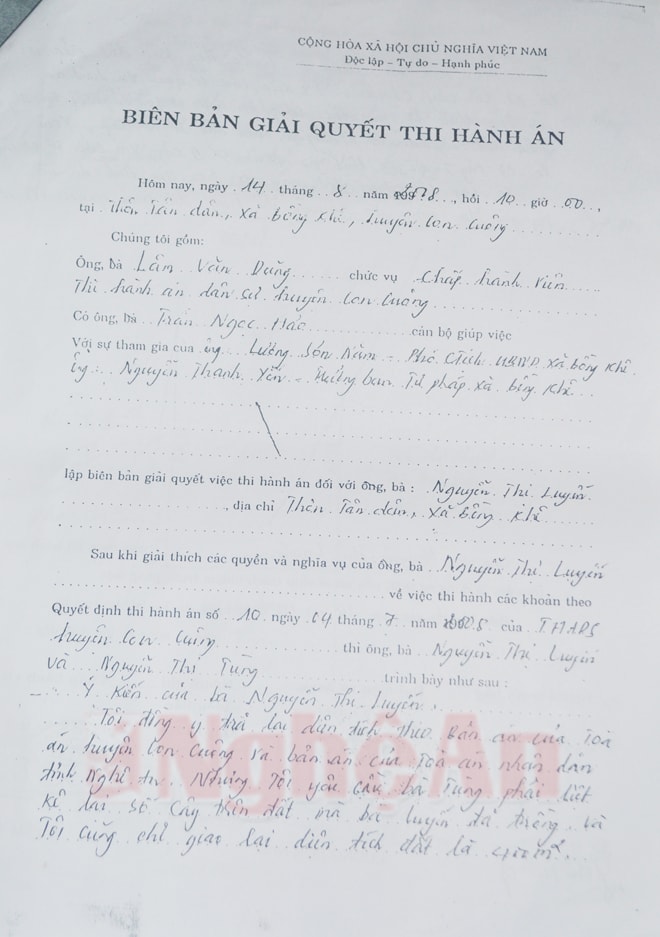 CỘNG HÒA XÃ HỘI CHỦ NGHĨA VIỆT NAM
Độc lập - Tự do - Hạnh phúc
BIÊN BẢN GIẢI QUYẾT THI HÀNH ÁN
Hôm nay, ngày 14 tháng 8 năm, hồi 10 giờ 00,
tại Thôn Tân dân, xã bồng khê, huyện Con Cuông
Chúng tôi gồm:
Ông, bà Lầm Văn Dũng chức vụ Chấp hành viên
Thi hành án dân sự huyện Con Cuông
Có ông, bà Trần Ngọc Hảo cán bộ giúp việc
Với sự tham gia của ông Lương Sơn Nam - Phó C.tịch UBND xã bồng khê.
Ông Nguyễn Thanh Yên - Trưởng ban Tư pháp xã bồng khê
lập biên bản giải quyết việc thi hành án đối với ông, bà : Nguyễn Thị Luyến
, địa chỉ Thôn Tân dân, xã bồng khê
Sau khi giải thích các quyền và nghĩa vụ của ông, bà Nguyễn Thị Luyến
về việc thi hành các khoản theo
Quyết định thi hành án số 10 ngày 04 tháng 7 năm của THADS
huyện Con Cuông thì ông, bà Nguyễn Thị Luyến
và Nguyễn Thị Tùng trình bày như sau :
Ý kiến của bà Nguyễn Thị Luyến,
Tôi đồng ý trả lại diện tích theo bản án của Toà
án huyện Con Cuông và bản án của Toà án nhân dân
tỉnh Nghệ An. Nhưng tôi yêu cầu bà Tùng phải liệt
kê lại số cây trên đất mà bà Luyến đã trồng và
Tôi cũng chỉ giao lại diện tích đất là 400m².
Nghệ An